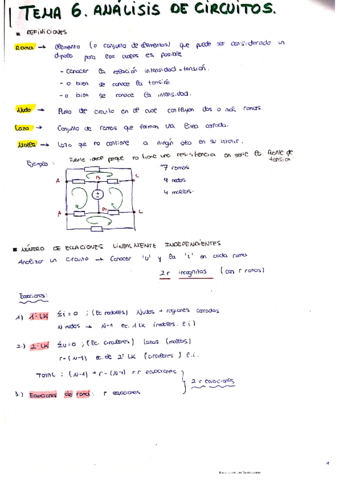 TEMA 6. ANÁLISIS DE CIRCUITOS.
■ DEFINICIONES
Rama → elemento (o conjunto de elementos) que puede ser considerado un
dipolo para los cuales es posible
- conocer la relación intensidad-tensión.
- o bien se conoce la tensión
- o bien se conoce la intensidad.
Nudo → Punto de circuito en el que confluyen dos o más ramas.
Lazo → Conjunto de ramas que forman una línea cerrada.
Malla → Lazo que no contiene a ningún otro en su interior.
Ejemplo: porque no tiene una resistencia en serie la fuente de
tensión
7 ramas
4 mallas
A
L
A
L
■ NÚMERO DE ECUACIONES LINEALMENTE INDEPENDIENTES
Analizar un circuito → Conocer "u" y la "i" en cada rama
2r incógnitas (con r ramas)
Ecuaciones:
1) 1ª LK Σi=0 ; (Ec nodales) Nudos + regiones cerradas
N nudos → N-1 Ec. 1 LK (nodales. l.i)
2.) 2ª LK Σu=0 ; (Ec. circulares) lazos (mallas)
r-(N-1) ec de 2ª LK (circulares) l.i.
Total: (N-1) + r-(N-1) = r ecuaciones
2r ecuaciones
3.) Ecuaciones de rama: r ecuaciones